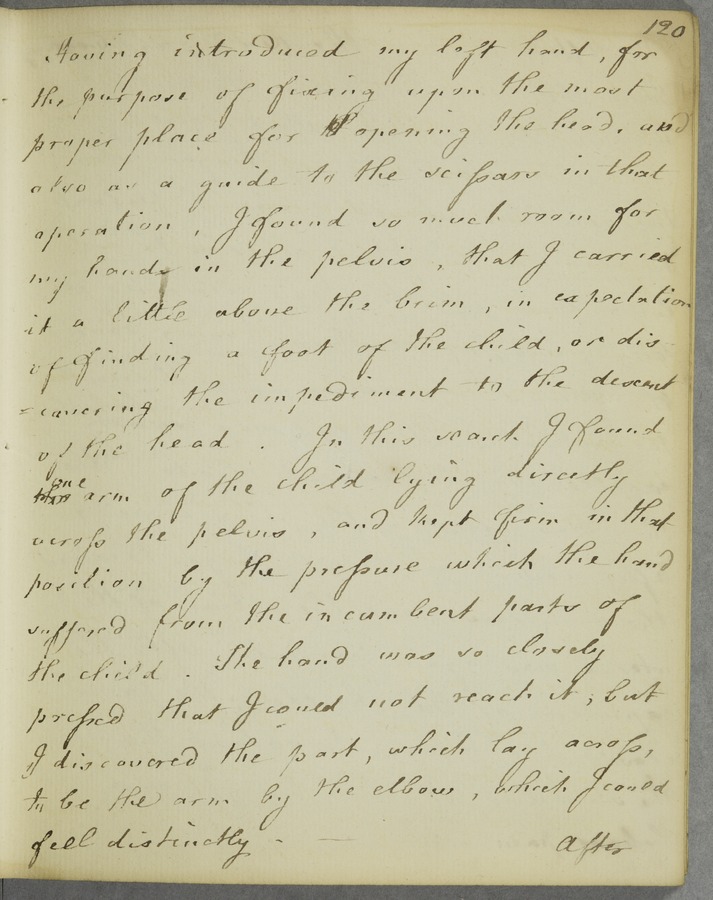 120
Having introduced my left hand, for
the purpose of fixing upon the most
proper place for opening the head, and
also as a guide to the scissars in that
operation, I found so much room for
my hand in the pelvis, that I carried
it a little above the brim, in expectation
of finding a foot of the child, or dis-
=covering the impediment to the descent
of the head. In this search I found
one arm of the child lying directly
across the pelvis, and kept firm in that
position by the pressure which the hand
suffered from the incumbent parts of
the child. The hand was so closely
pressed that I could not reach it; but
I discovered the part, which lay across,
to be the arm by the elbow, which I could
feel distinctly. —
After